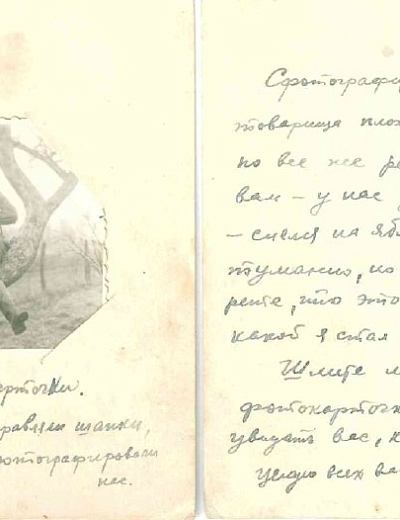 ерточки.
равляли шапки,
отографировали
нас.
Сфотографи
товарища плох
но все же ре
вам – у нас
– снелся на ябл
туманно, но
рете, что это
какой я стал
Шлите м
фотокарточк
увидать вас, к
целую всех ва